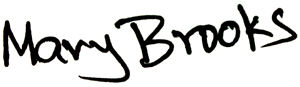 Mary Brooks